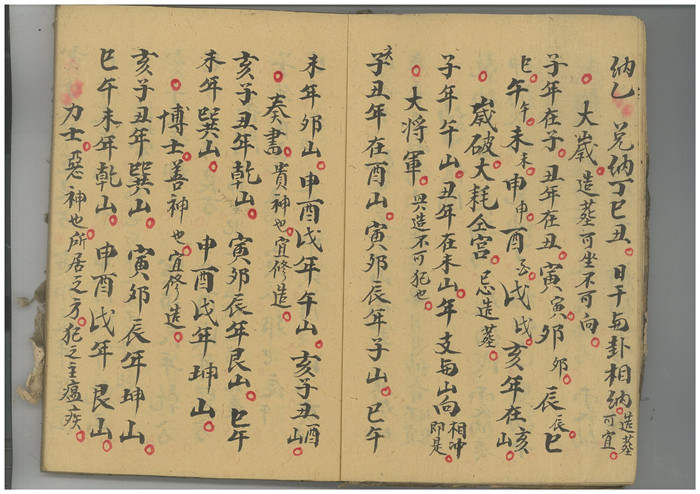 纳乙 兑纳丁巳丑 日干与卦相纳造葬可宜
大崴造葬可坐不可向
子年在子丑年在丑寅寅卯卯辰辰巳
巳午午未未申申酉戌戌亥年在亥山
崴破大耗仝宫忌造葬
子年午山丑年在未山年支与山向相冲即是
大将軍兴造不可犯也
亥子丑年在酉山寅卯辰年子山巳午
未年卯山申酉戌年午山亥子丑酉山
奏書貴神也宜修造
亥子丑年乹山寅卯辰年艮山巳午
未年巽山 申酉戌年坤山
博士善神也宜修造
亥子丑年巽山 寅卯辰年坤山
巳午未年乾山 申酉戌年艮山
力士惡神也所居之方犯之主瘟疾